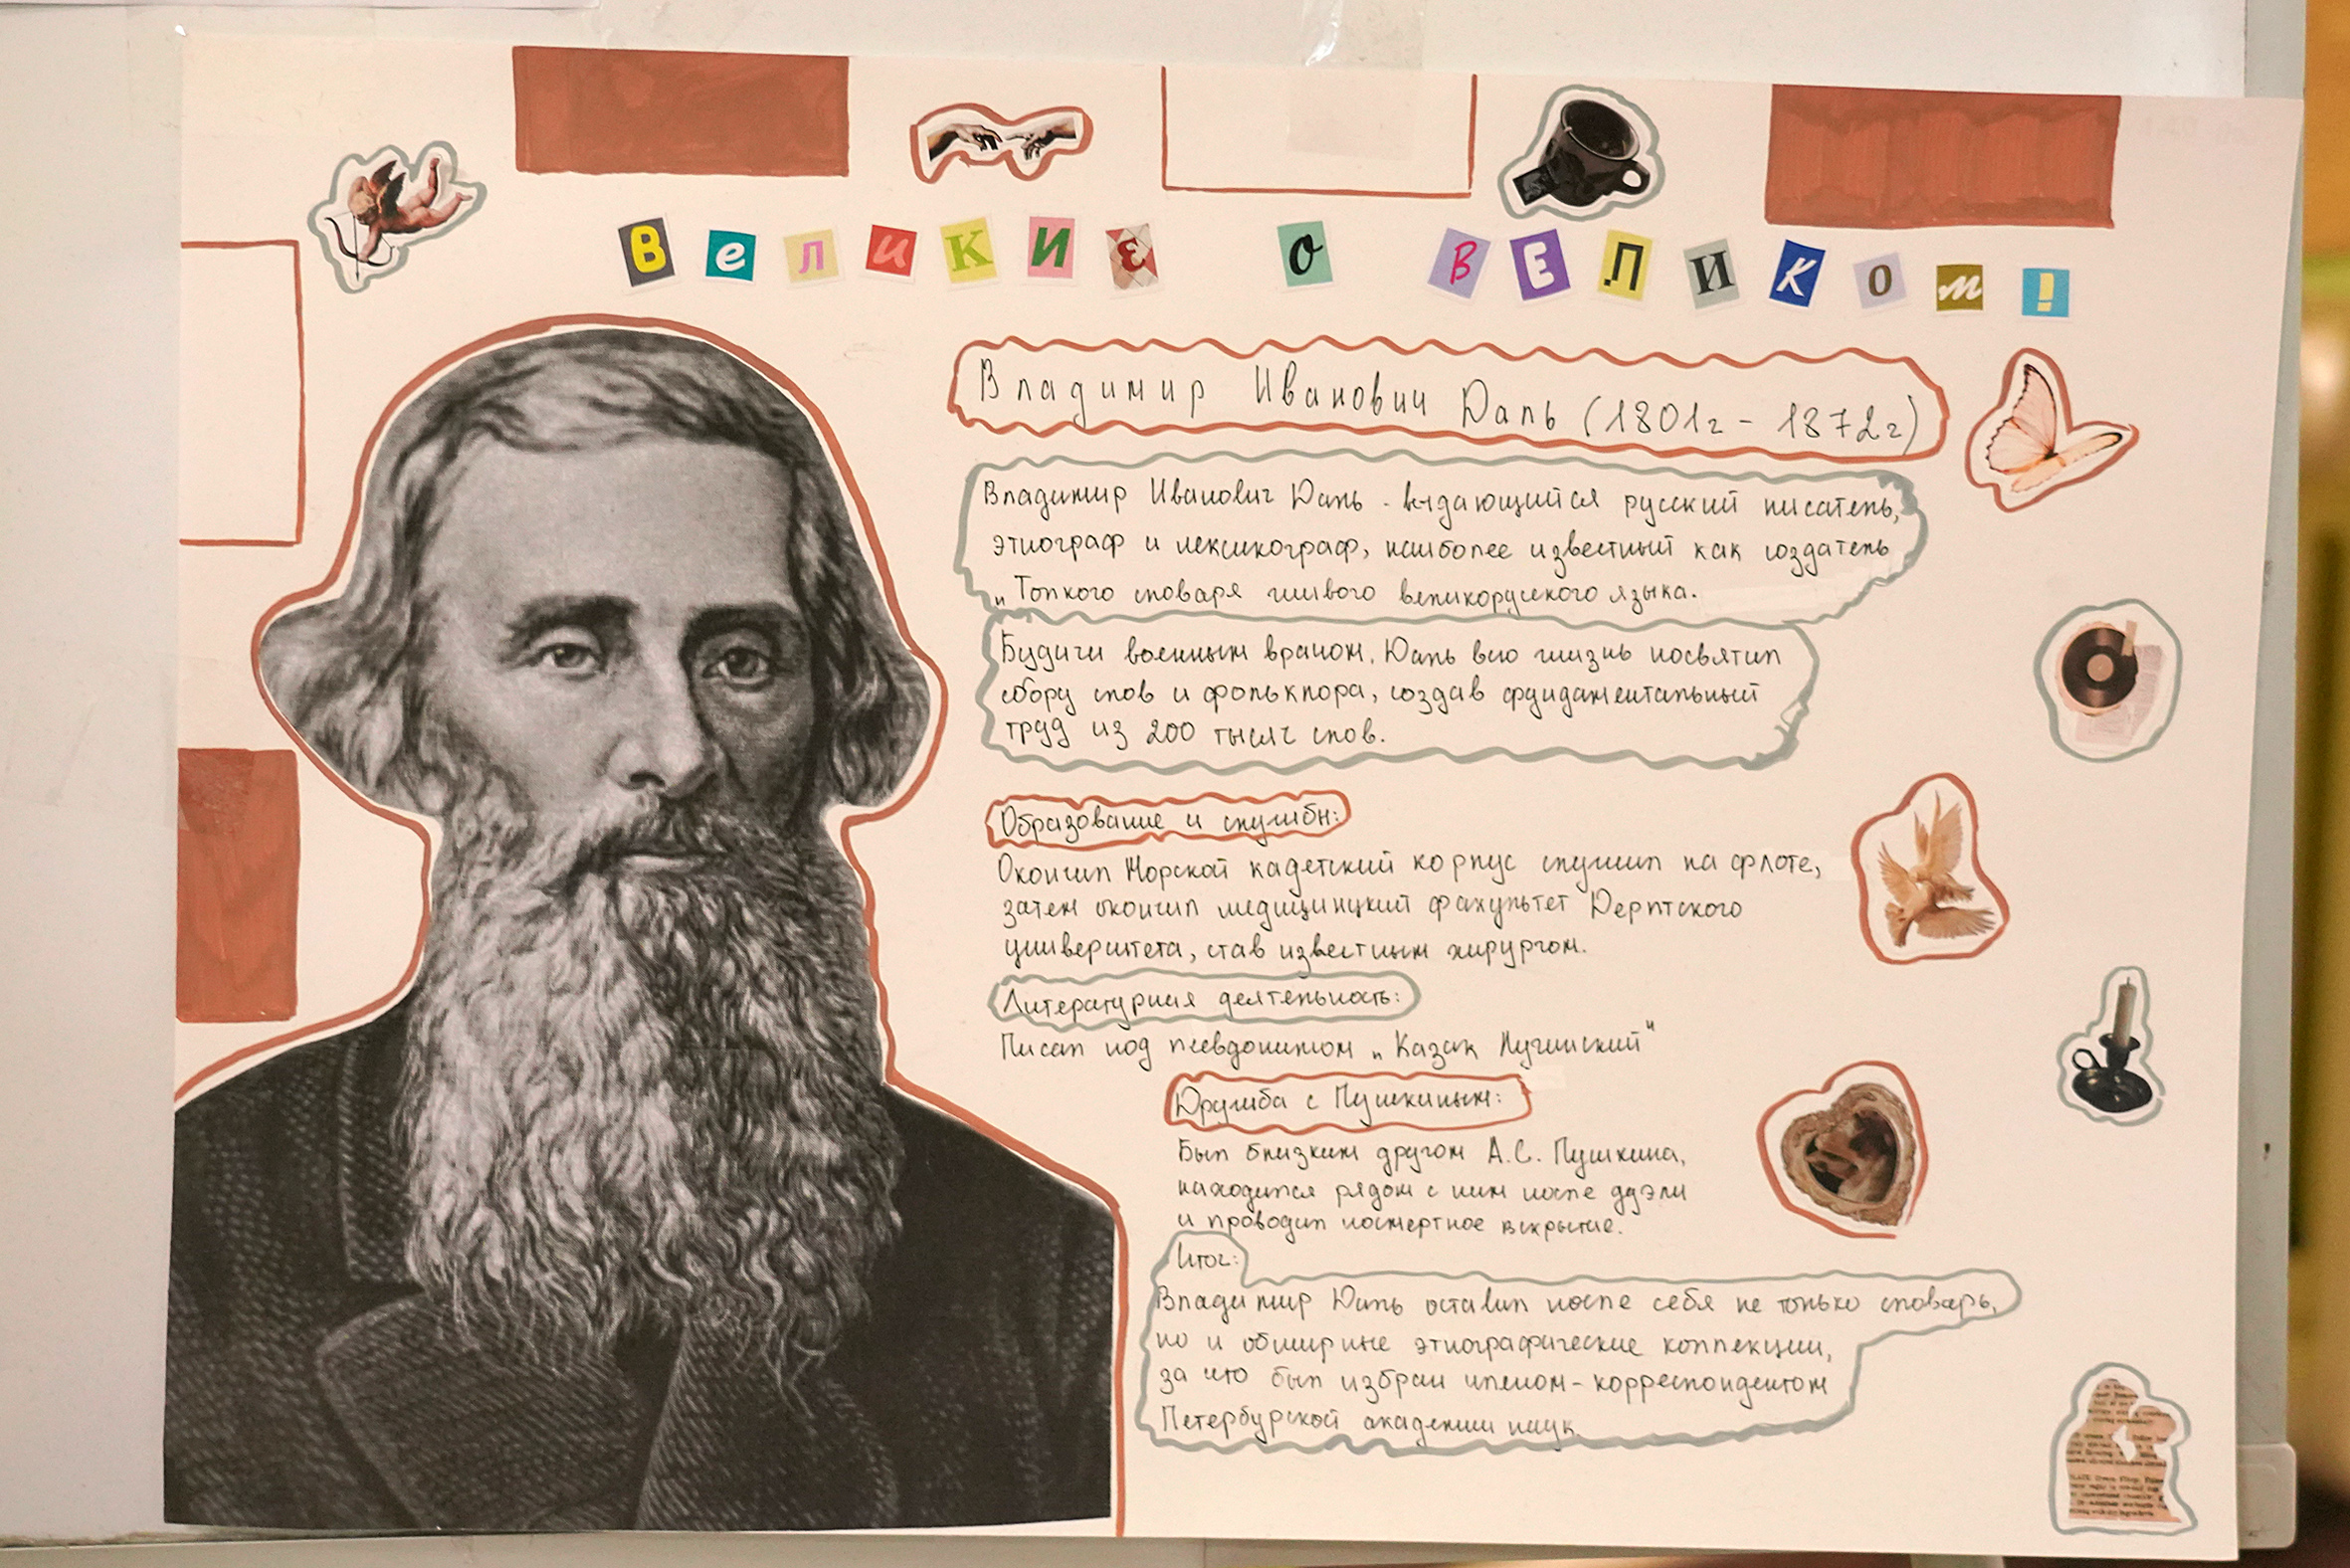 Великие о великом!
Владимир Иванович Даль (1801г - 1872г)
Владимир Иванович Даль - выдающийся русский писатель,
этнограф и лексикограф, наиболее известный как создатель
„Толкого словаря живого великорусского языка.
Будучи военным врачом, Даль всю жизнь посвятил
сбору слов и фольклора, создав фундаментальный
труд из 200 тысяч слов.
Образование и служба:
Окончил Морской кадетский корпус служил на флоте,
затем окончил медицинский факультет Дерптского
университета, став известным хирургом.
Литературная деятельность:
Писал под псевдонимом „Казак Луганский"
Дружба с Пушкиным:
Был близким другом А.С. Пушкина,
находился рядом с ним после дуэли
и проводил посмертное вскрытие.
Итог:
Владимир Даль оставил после себя не только словарь,
но и обширные этнографические коллекции,
за что был избран членом-корреспондентом
Петербурской академии наук